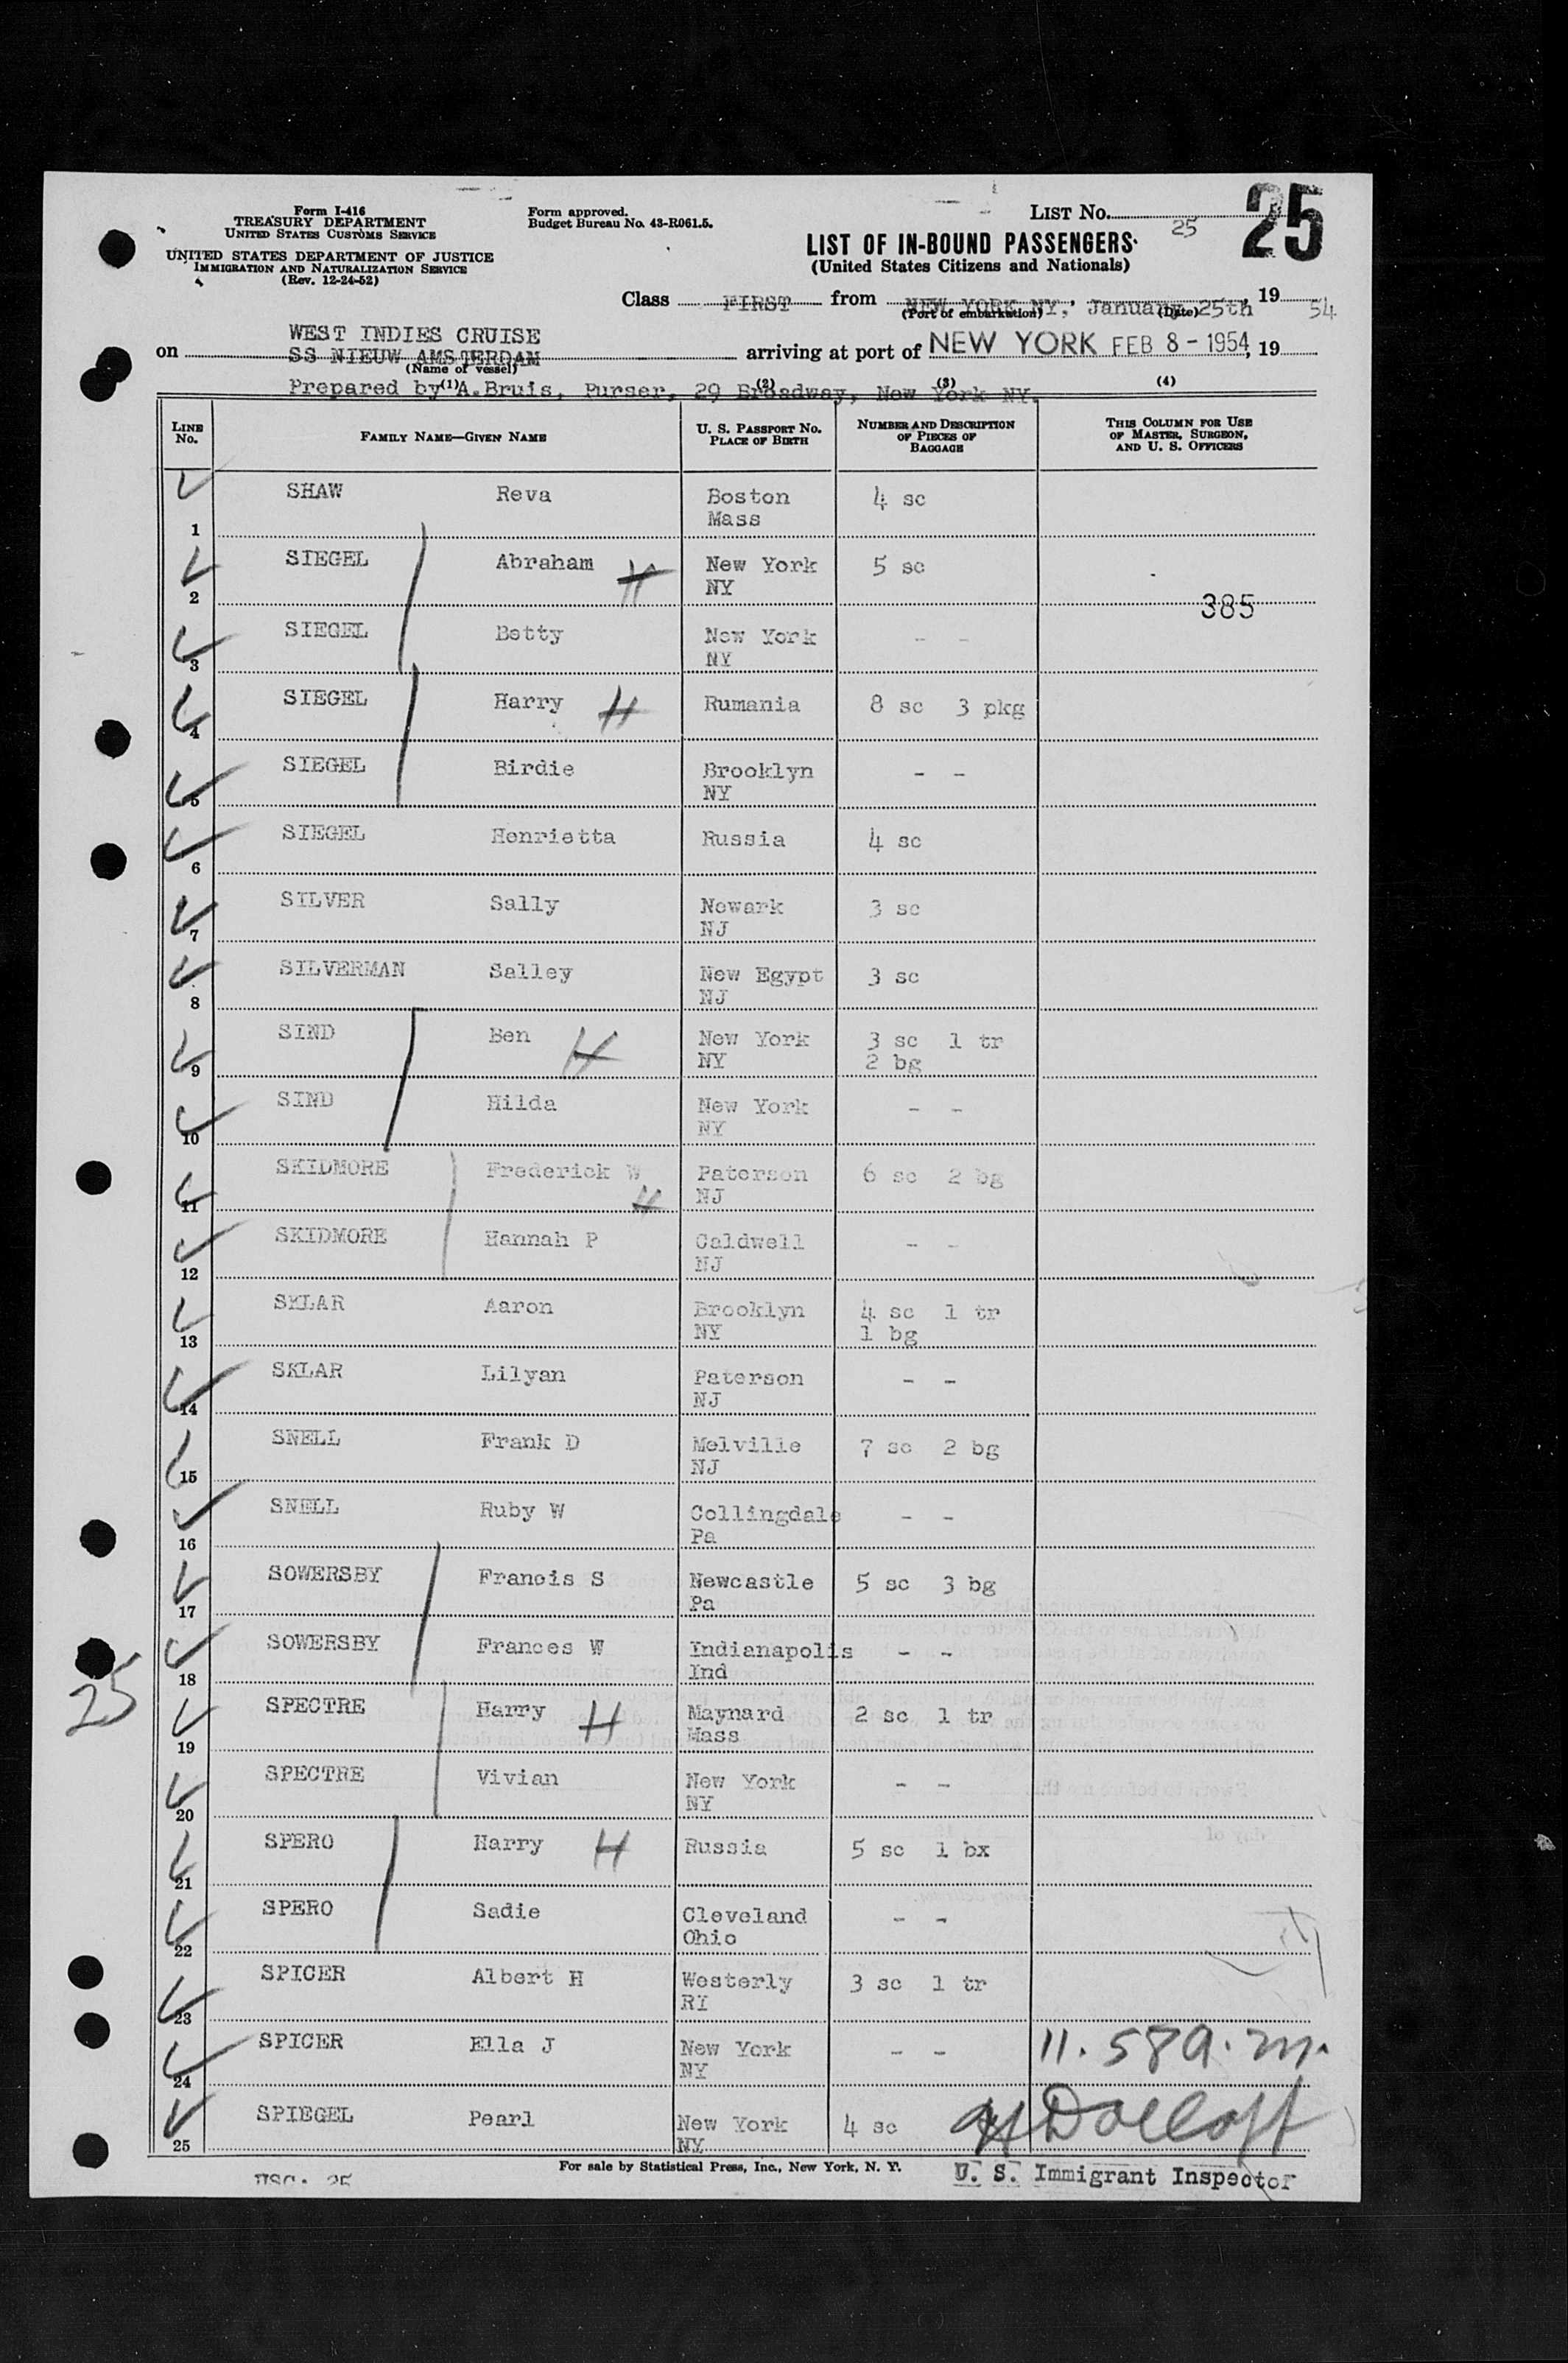 Form I-416
TREASURY DEPARTMENT
UNITED STATES CUSTOMS SERVICE
UNITED STATES DEPARTMENT OF JUSTICE
IMMIGRATION AND NATURALIZATION SERVICE
(Rev. 12-24-52)
Form approved.
Budget Bureau No. 43-R061.5.
LIST No. 25
25
LIST OF IN-BOUND PASSENGERS
(United States Citizens and Nationals)
Class FIRST from NEW YORK NY, January 25th, 19 54
(Port of embarkation) (Date)
WEST INDIES CRUISE
on SS NIEUW AMSTERDAM arriving at port of NEW YORK FEB 8-1954, 19
(Name of vessel)
Prepared by A.Bruis, Purser, 29 Broadway, New York NY.
(1) (2) (3) (4)
LINE No. FAMILY NAME—GIVEN NAME U. S. PASSPORT No. PLACE OF BIRTH NUMBER AND DESCRIPTION OF PIECES OF BAGGAGE THIS COLUMN FOR USE OF MASTER, SURGEON, AND U. S. OFFICERS
1 SHAW Reva Boston Mass 4 sc
2 SIEGEL Abraham H New York NY 5 sc
385
3 SIEGEL Betty New York NY - -
4 SIEGEL Harry H Rumania 8 sc 3 pkg
5 SIEGEL Birdie Brooklyn NY - -
6 SIEGEL Henrietta Russia 4 sc
7 SILVER Sally Newark NJ 3 sc
8 SILVERMAN Salley New Egypt NJ 3 sc
9 SIND Ben H New York NY 3 sc 1 tr 2 bg
10 SIND Hilda New York NY - -
11 SKIDMORE Frederick W H Paterson NJ 6 sc 2 bg
12 SKIDMORE Hannah P Caldwell NJ - -
13 SKLAR Aaron Brooklyn NY 4 sc 1 tr 1 bg
14 SKLAR Lilyan Paterson NJ - -
15 SNELL Frank D Melville NJ 7 sc 2 bg
16 SNELL Ruby W Collingdale Pa - -
17 SOWERSBY Francis S Newcastle Pa 5 sc 3 bg
18 SOWERSBY Frances W Indianapolis Ind - -
25
19 SPECTRE Harry H Maynard Mass 2 sc 1 tr
20 SPECTRE Vivian New York NY - -
21 SPERO Harry H Russia 5 sc 1 bx
22 SPERO Sadie Cleveland Ohio - -
23 SPICER Albert H Westerly RI 3 sc 1 tr
24 SPICER Ella J New York NY - -
11.58 a.m.
25 SPIEGEL Pearl New York NY 4 sc
For sale by Statistical Press, Inc., New York, N. Y.
U. S. Immigrant Inspector
USC: 25